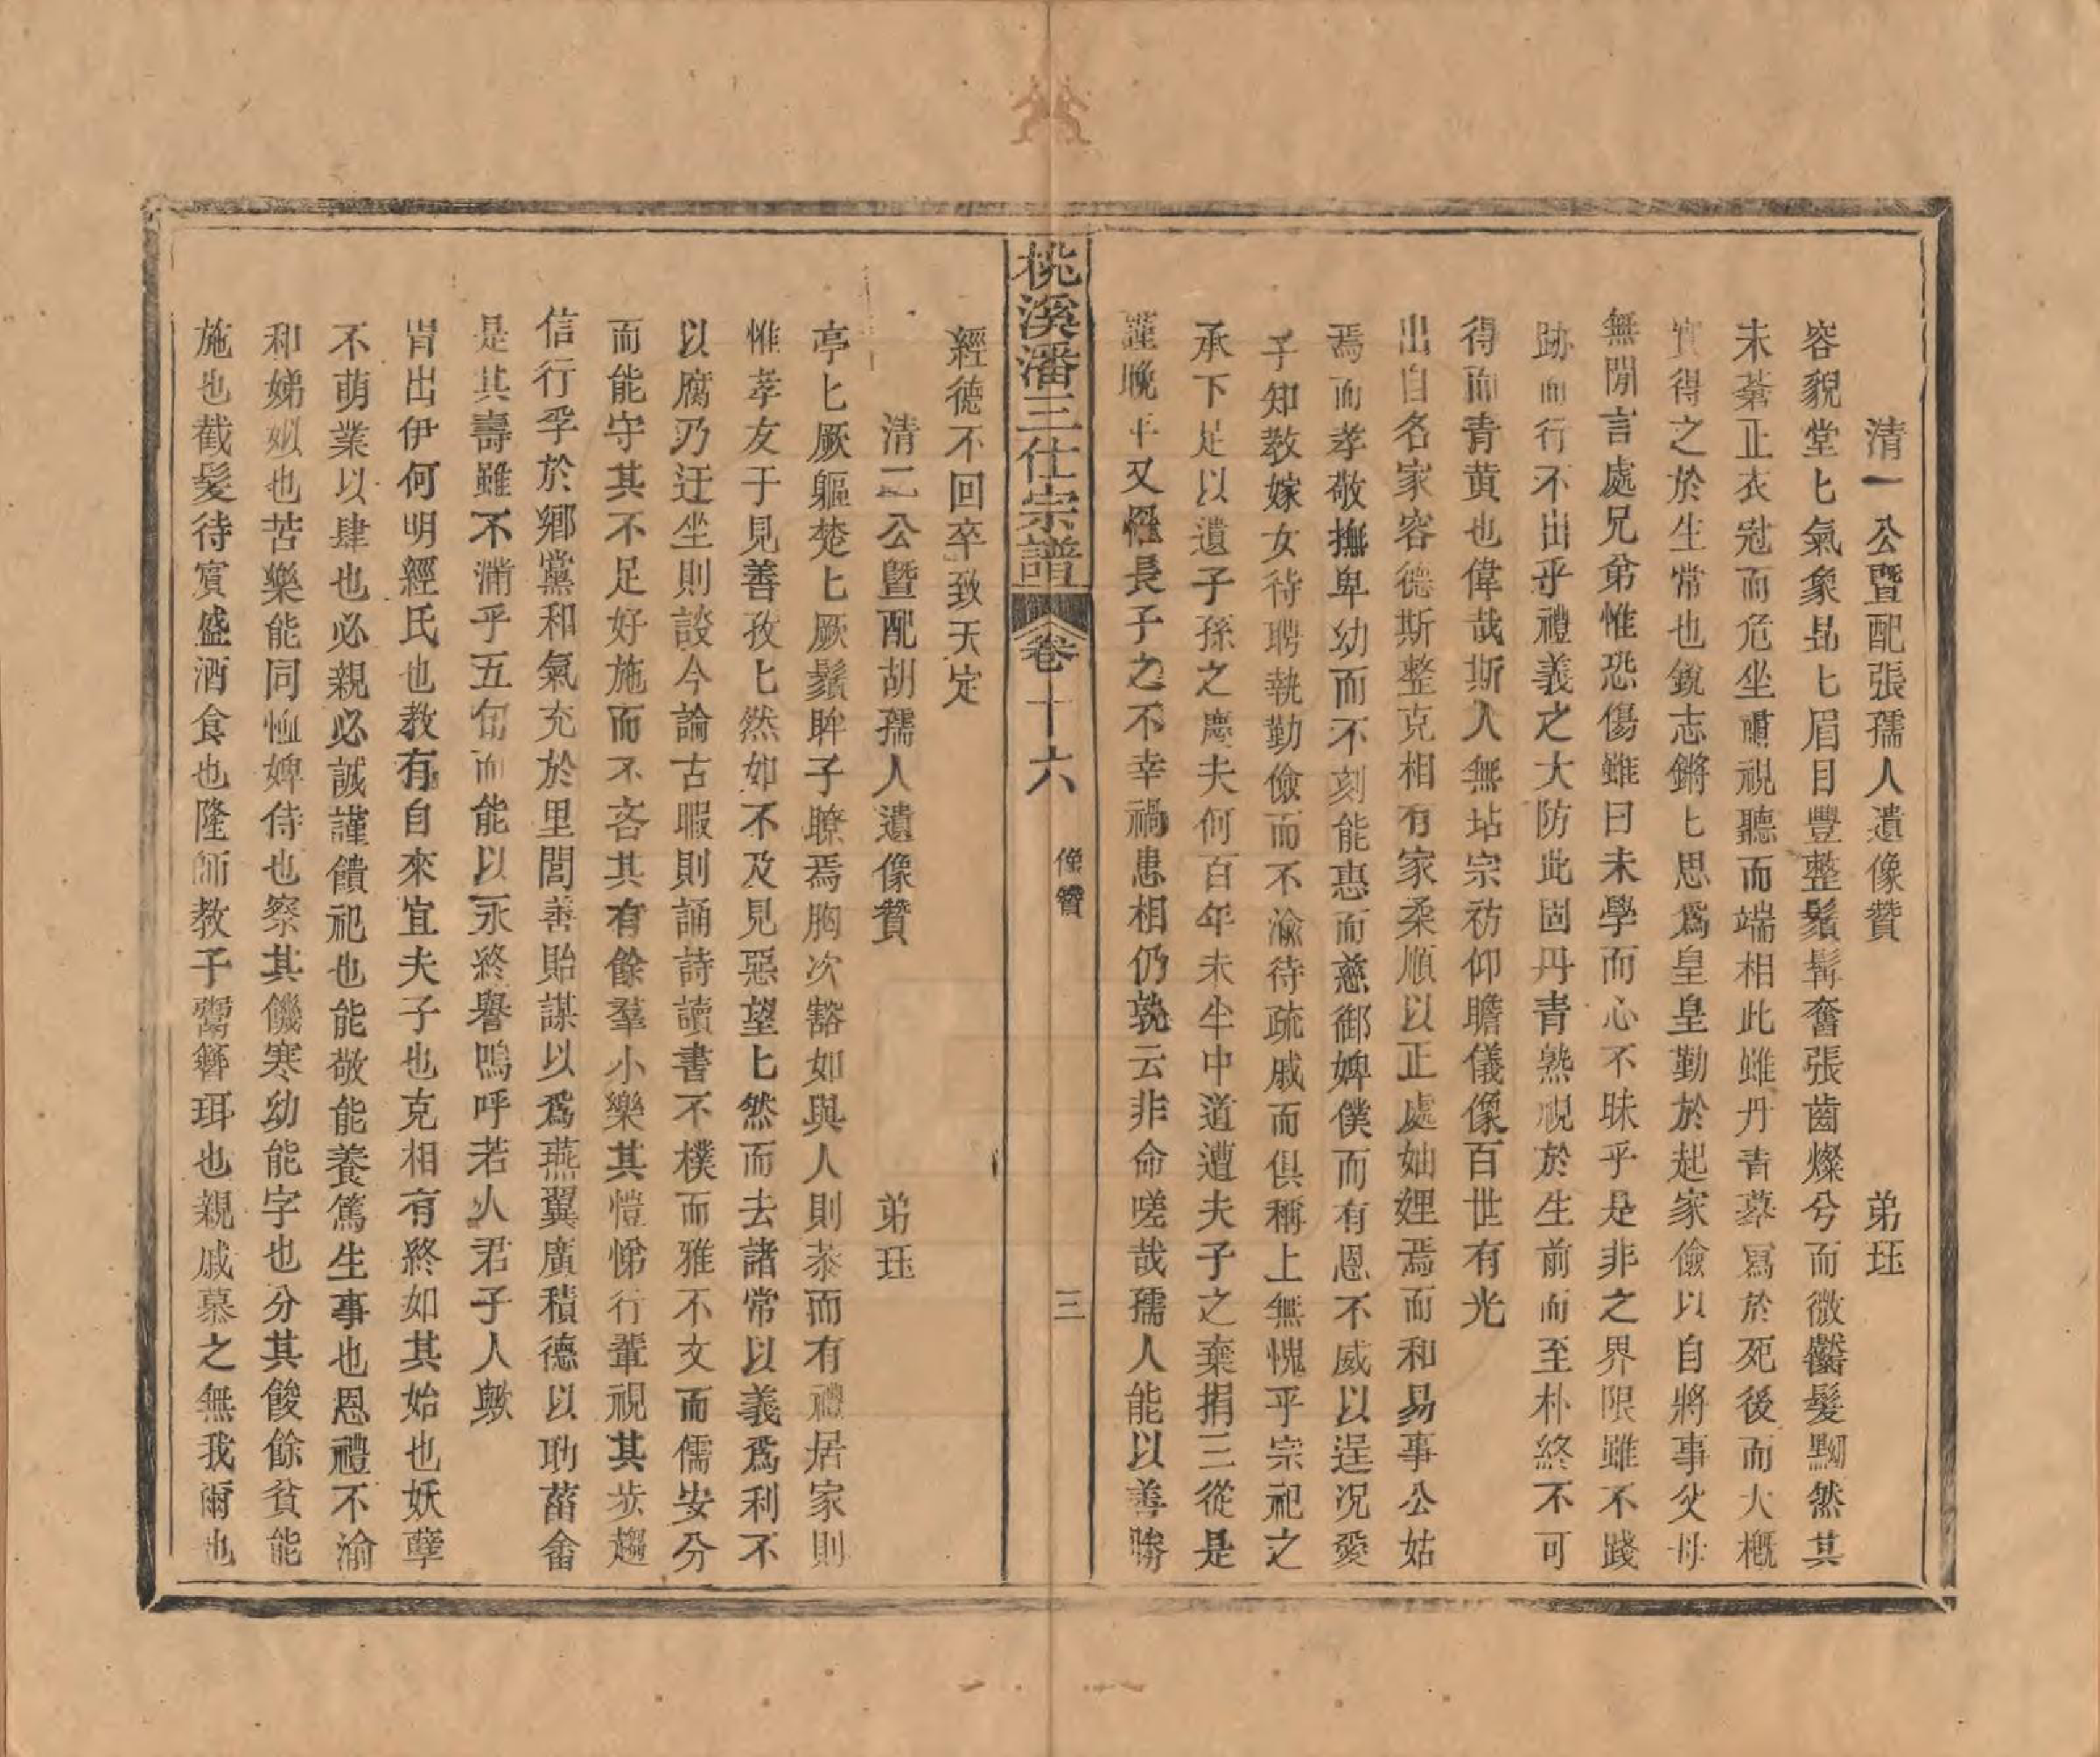 清一公暨配張孺人遺像贊　弟珏
容貌堂匕氣象昻匕眉目豐整鬚髯奮張齒燦兮而微齹髮黝然其
未蒼正衣冠而危坐肅視聽而端相此雖丹青摹寫於死後而大概
實得之於生常也銳志鏘匕思爲皇皇勤於起家儉以自將事父母
無閒言處兄弟惟恐傷雖曰未學而心不昧乎是非之界限雖不踐
跡而行不出乎禮義之大防此固丹青熟視於生前而至朴終不可
得而青黃也偉哉斯人無玷宗祊仰瞻儀像百世有光
出自名家容德斯整克相有家柔順以正處妯娌焉而和易事公姑
焉而孝敬撫卑幼而不刻能惠而慈御婢僕而有恩不威以逞況愛
子知教嫁女待聘執勤儉而不渝待疏戚而俱稱上無愧乎宗祀之
承下足以遺子孫之慶夫何百年未半中道遭夫子之棄捐三從是
謹晚年又罹長子之不幸禍患相仍孰云非命嗟哉孺人能以善勝
桃溪潘三仕宗譜　卷十六　像贊　三
經德不回卒致天定
清二公暨配胡孺人遺像贊　弟珏
亭匕厥軀楚匕厥鬚眸子瞭焉胸次豁如與人則恭而有禮居家則
惟孝友于見善孜匕然如不及見惡望匕然而去諸常以義爲利不
以腐乃迂坐則談今論古暇則誦詩讀書不樸而雅不文而儒安分
而能守其不足好施而不吝其有餘羣小樂其愷悌行輩視其步趨
信行孚於鄉黨和氣充於里閭善貽謀以爲燕翼廣積德以助菑畬
是其壽雖不滿乎五旬而能以永終譽嗚呼若人君子人歟
胄出伊何明經氏也教有自來宜夫子也克相有終如其始也妖孽
不萌業以肆也必親必誠謹饋祀也能敬能養篤生事也恩禮不渝
和娣姒也苦樂能同恤婢侍也察其饑寒幼能字也分其餕餘貧能
施也截髮待賓盛酒食也隆師教子鬻簪珥也親戚慕之無我爾也